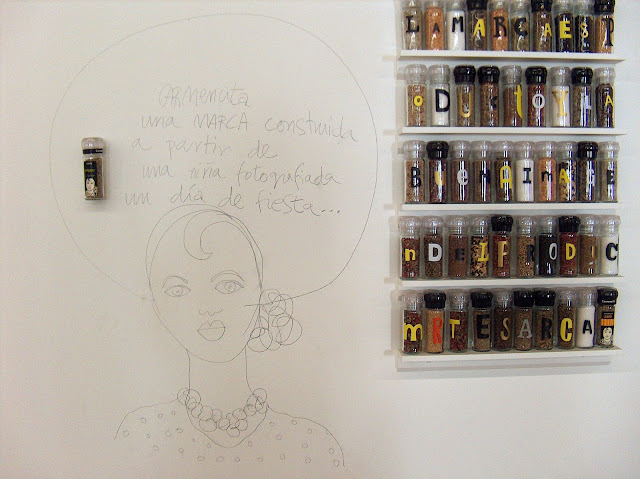 CARMENCITA
una MARCA construida
a partir de
una niña fotografiada
un día de fiesta...
LaMARCAESP
oDUctoYlA
BUENAIMAGE
nDElPRODUC
mRTESARCA